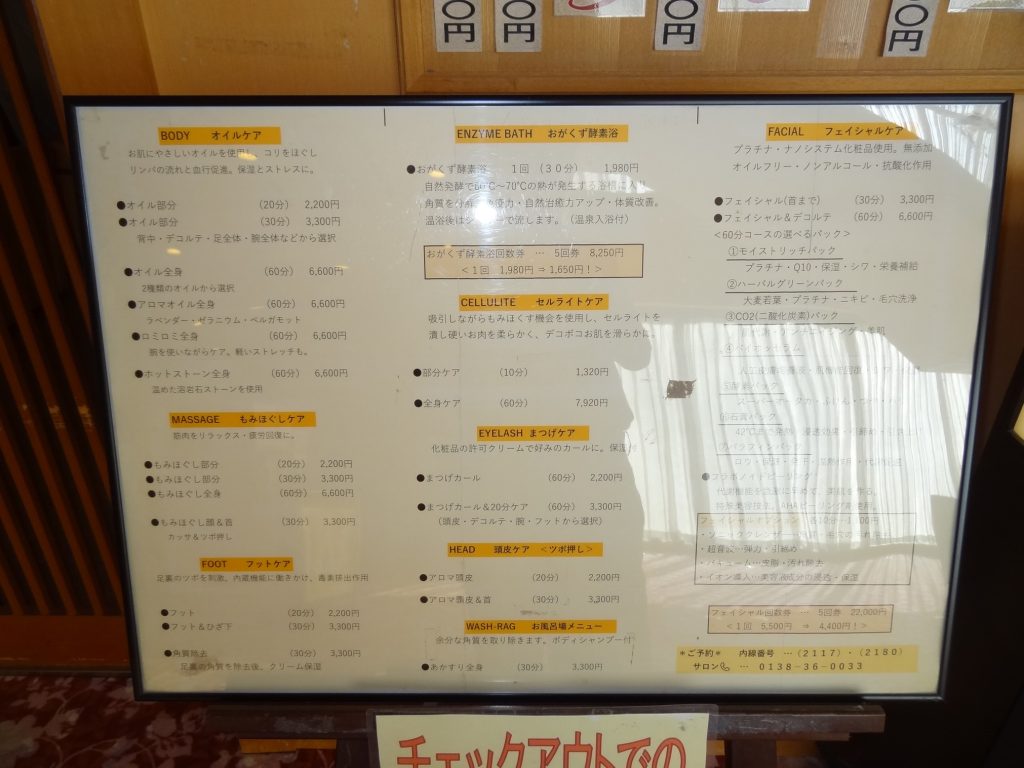 0円
0円
0円
0円
BODY オイルケア
お肌にやさしいオイルを使用し コリをほぐし
リンパの流れと血行促進。保湿とストレスに。
●オイル部分 (20分) 2,200円
●オイル部分 (30分) 3,300円
背中・デコルテ・足全体・腕全体などから選択
●オイル全身 (60分) 6,600円
2種類のオイルから選択
●アロマオイル全身 (60分) 6,600円
ラベンダー・ゼラニウム・ベルガモット
●ロミロミ全身 (60分) 6,600円
腕を使いながらケア。軽いストレッチも。
●ホットストーン全身 (60分) 6,600円
温めた溶岩石ストーンを使用
MASSAGE もみほぐしケア
筋肉をリラックス・疲労回復に。
●もみほぐし部分 (20分) 2,200円
●もみほぐし部分 (30分) 3,300円
●もみほぐし全身 (60分) 6,600円
●もみほぐし顔&首 (30分) 3,300円
カッサ&ツボ押し
FOOT フットケア
足裏のツボを刺激、内蔵機能に働きかけ、毒素排出作用
●フット (20分) 2,200円
●フット&ひざ下 (30分) 3,300円
●角質除去 (30分) 3,300円
足裏の角質を除去後、クリーム保湿
ENZYME BATH おがくず酵素浴
●おがくず酵素浴 1回 (30分) 1,980円
自然発酵で60℃～70℃の熱が発生する浴槽に入り
角質を分解 免疫力・自然治癒力アップ・体質改善。
温浴後はシャワーで流します。(温泉入浴付)
おがくず酵素浴回数券 … 5回券 8,250円
<1回 1,980円 ⇒ 1,650円！>
CELLULITE セルライトケア
吸引しながらもみほぐす機会を使用し、セルライトを
潰し硬いお肉を柔らかく、デコボコお肌を滑らかに。
●部分ケア (10分) 1,320円
●全身ケア (60分) 7,920円
EYELASH まつげケア
化粧品の許可クリームで好みのカールに。保湿付
●まつげカール (60分) 2,200円
●まつげカール&20分ケア (60分) 3,300円
(頭皮・デコルテ・腕・フットから選択)
HEAD 頭皮ケア <ツボ押し>
●アロマ頭皮 (20分) 2,200円
●アロマ頭皮&首 (30分) 3,300円
WASH-RAG お風呂場メニュー
余分な角質を取り除きます。ボディシャンプー付
●あかすり全身 (30分) 3,300円
FACIAL フェイシャルケア
プラチナ・ナノシステム化粧品使用。無添加
オイルフリー・ノンアルコール・抗酸化作用
●フェイシャル(首まで) (30分) 3,300円
●フェイシャル&デコルテ (60分) 6,600円
<60分コースの選べるパック>
①モイストリッチパック
プラチナ・Q10・保湿・シワ・栄養補給
②ハーバルグリーンパック
大麦若葉・プラチナ・ニキビ・毛穴洗浄
③CO2(二酸化炭素)パック
美肌
④バイオセラム
⑤酵素パック
⑥石膏パック
⑦パラフィンパック
●フラボノイドピーリング
代謝機能を活発に早めて、美肌を作る。
AHAピーリング剤使用。
フェイシャルオプション 各10分
・ソニッククレンザー
・超音波…弾力・引締め
・バキューム…皮脂・汚れ除去
・イオン導入…美容液成分の浸透・保湿
フェイシャル回数券 … 5回券 22,000円
<1回 5,500円 ⇒ 4,400円！>
＊ご予約＊ 内線番号 …(2117)・(2180)
サロン … 0138-36-0033
チェックアウトでの